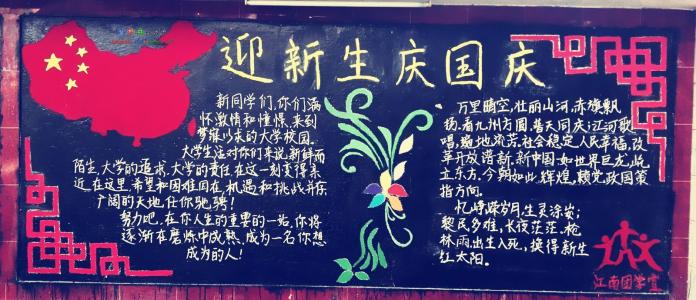 迎新生庆国庆
新同学们,你们满
怀激情和憧憬,来到
梦寐以求的大学校园.
大学生活对你们来说,新鲜而
陌生,大学的追求,大学的责任,在这一刻变得亲
近.在这里,希望和困难同在,机遇和挑战并存
广阔的天地任你驰骋!
努力吧,在你人生的重要的一站,你将
逐渐在磨练中成熟,成为一名你想
成为的人!
万里晴空,壮丽山河,赤旗飘
扬.看九州方圆,普天同庆;江河歌
唱,遍地流芳.社会稳定,人民幸福,改
革开放谱新.新中国,如世界巨龙,屹
立东方.今朝如此辉煌,赖党政国策
指方向.
忆峥嵘岁月,生灵涂炭;
黎民多难,长夜茫茫.枪
林雨出生入死,换得新生
红太阳.
江南团学宣